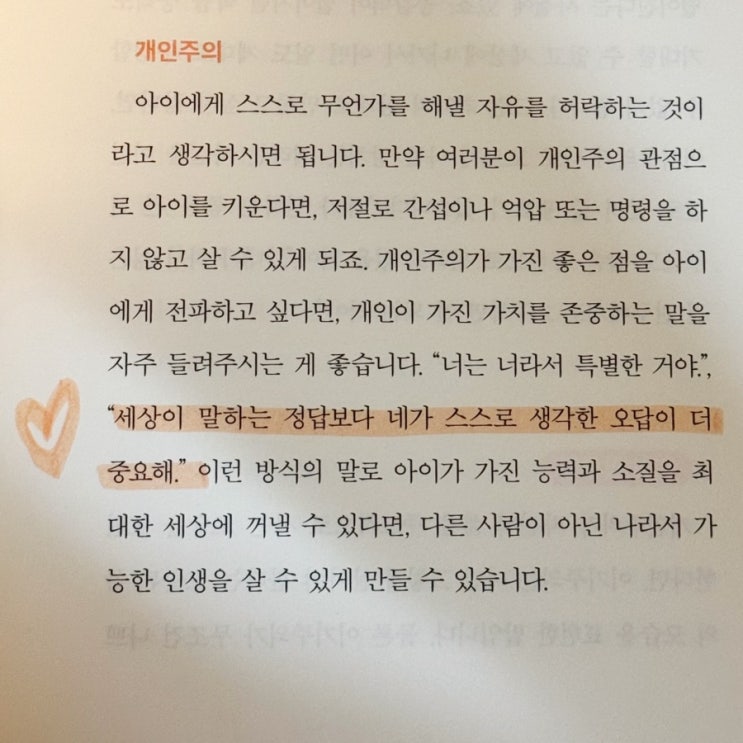 개인주의
아이에게 스스로 무언가를 해낼 자유를 허락하는 것이
라고 생각하시면 됩니다. 만약 여러분이 개인주의 관점으
로 아이를 키운다면, 저절로 간섭이나 억압 또는 명령을 하
지 않고 살 수 있게 되죠. 개인주의가 가진 좋은 점을 아이
에게 전파하고 싶다면, 개인이 가진 가치를 존중하는 말을
자주 들려주시는 게 좋습니다. “너는 너라서 특별한 거야.”,
“세상이 말하는 정답보다 네가 스스로 생각한 오답이 더
중요해.” 이런 방식의 말로 아이가 가진 능력과 소질을 최
대한 세상에 꺼낼 수 있다면, 다른 사람이 아닌 나라서 가
능한 인생을 살 수 있게 만들 수 있습니다.